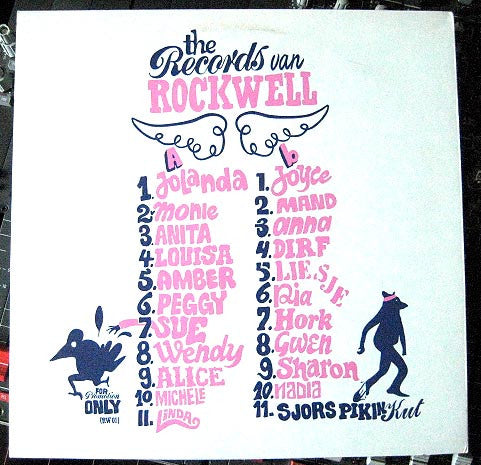 the
Records van
ROCKWELL
A
1. Jolanda
2. monie
3. ANITA
4. LOUISA
5. AMBER
6. PEGGY
7. SUE
8. Wendy
9. ALICE
10. MICHELE
11. LINDA
b
1. Joyce
2. MAND
3. anna
4. DIRF
5. LIESJE
6. Ria
7. Hork
8. Gwen
9. Sharon
10. nadia
11. SJORS PIKIN Kut
FOR
Promotion
ONLY
(RW 01)